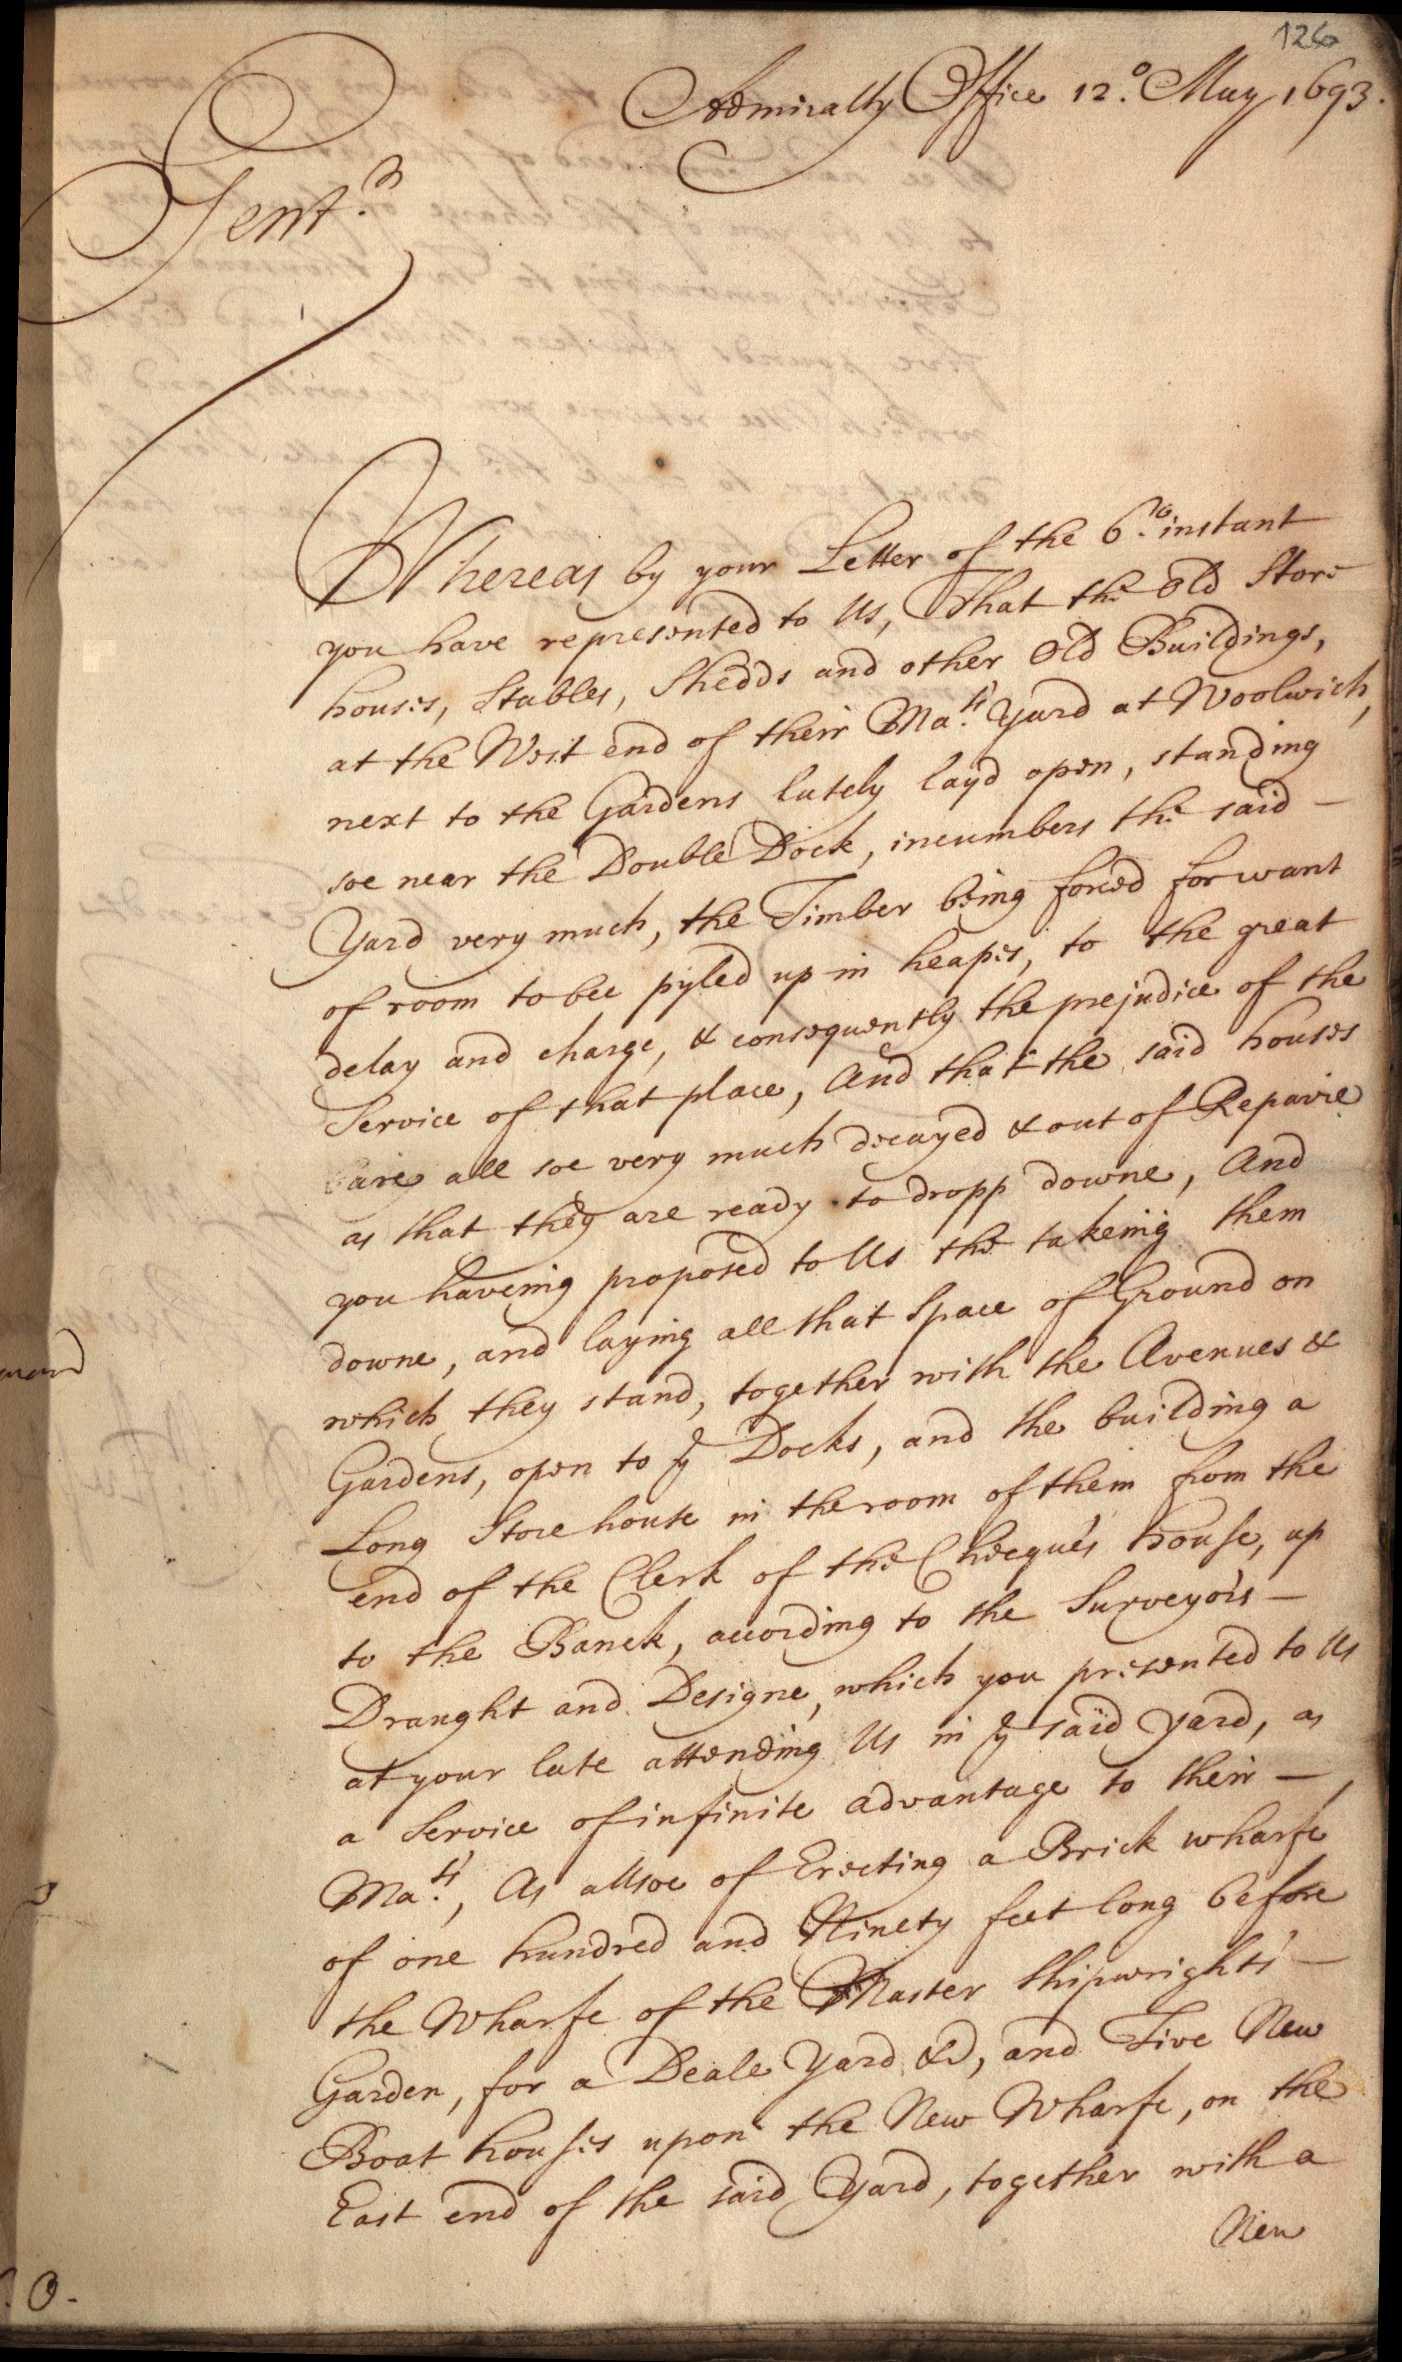 126
Admiralty Office 12.o May 1693.
Gent.n
Whereas by your Letter of the 6.to instant
you have represented to Us, That the Old Store
houses, Stables, Shedds and other Old Buildings,
at the West end of their Ma.ts Yard at Woolwich,
next to the Gardens lately layd open, standing
soe near the Double Dock, incumbers the said —
Yard very much, the Timber being forced for want
of room to bee pyled up in heapes, to the great
delay and charge, & consequently the prejudice of the
Service of that place, And that the said houses
are all soe very much decayed & out of Repaire
as that they are ready to dropp downe, And
you haveing proposed to Us the takeing them
downe, and laying all that Space of Ground on
which they stand, together with the Avenues &
Gardens, open to ye Docks, and the building a
Long Storehouse in the room of them from the
end of the Clerk of the Checque's house, up
to the Banck, according to the Surveyors —
Draught and Designe, which you presented to Us
at your late attending Us in ye said yard, as
a Service of infinite advantage to their —
Ma.ts, As allsoe of Erecting a Brick wharfe
of one hundred and Ninety feet long before
the Wharfe of the Master Shipwright's —
Garden, for a Deale Yard &c, and Five New
Boat houses upon the New Wharfe, on the
East end of the said Yard, together with a
New
0.